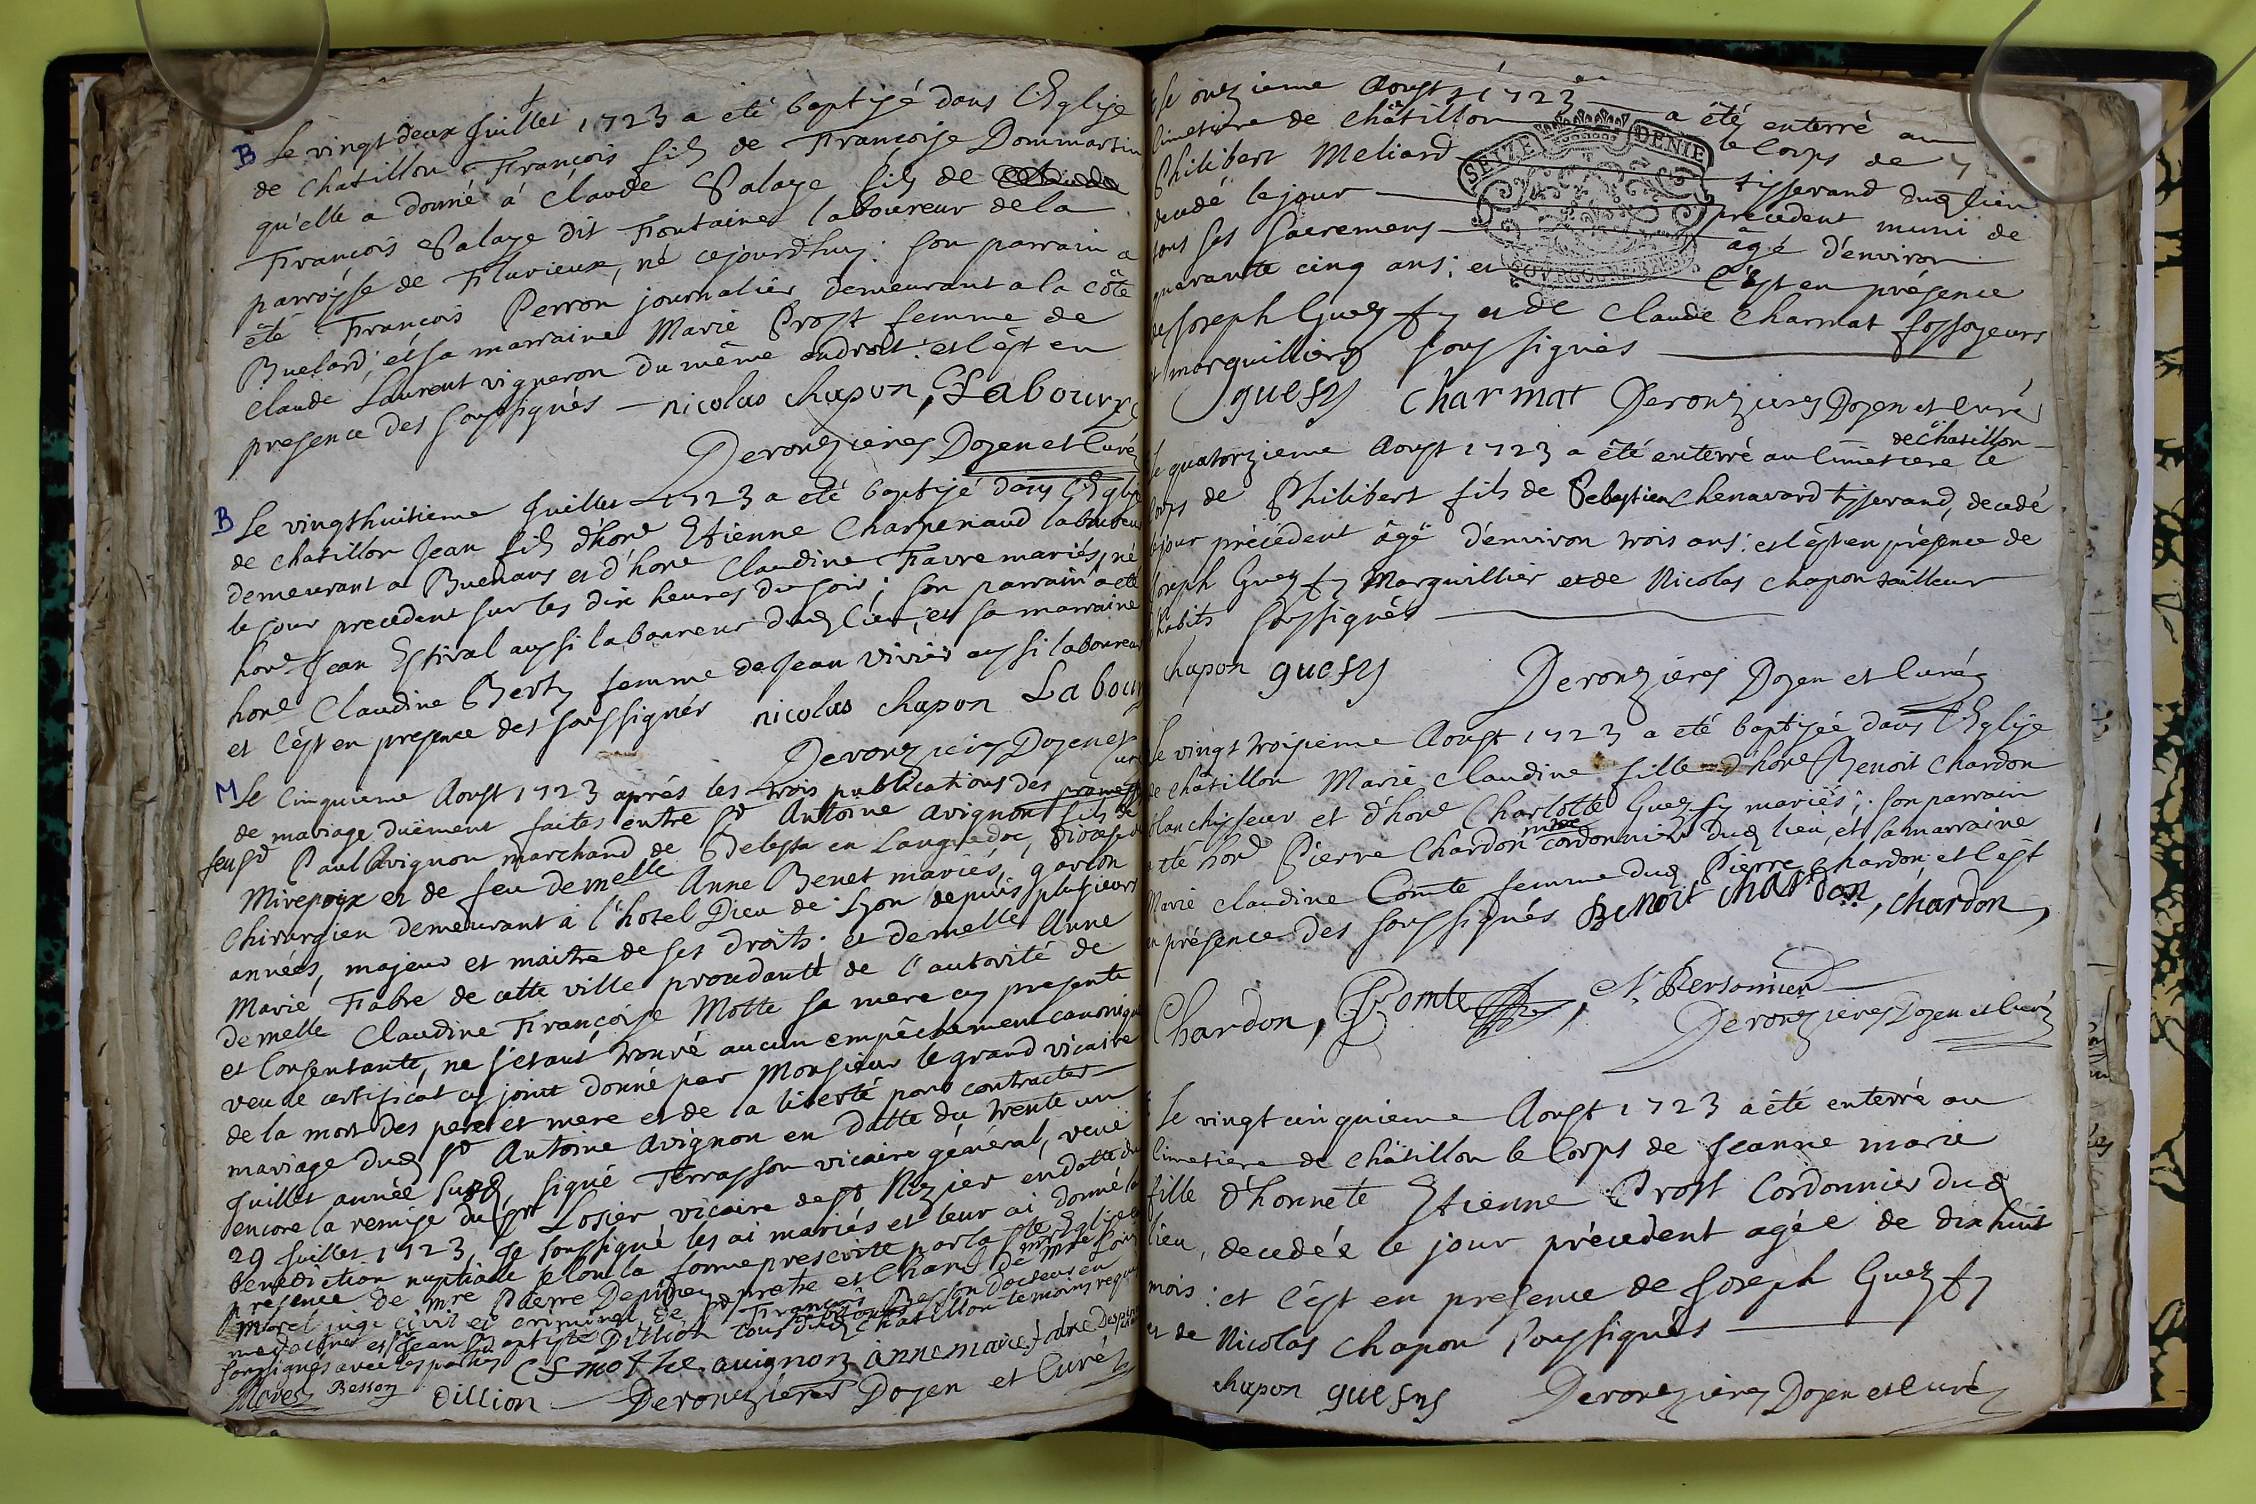 B Le vingt deux Juillet 1723 a eté baptisé dans l'Eglise
de Chatillon François fils de Françoise Dommartin
qu'elle a donné à Claude Palaye fils de
François Palaye dit Fontaine laboureur de la
parroisse de Flurieux, né cejourdhuy: son parrain a
été François Perron journalier demeurant a la côte
Buelard, et sa marraine Marie Prost femme de
Claude Laurent vigneron du même endroit: et c'est en
presence des soussignés — nicolas chapon, Labourz
Deronzieres Doyen et Curé
B Le vingthuitieme Juillet 1723 a eté baptisé dans l'Eglise
de chatillon Jean fils d'hon^e Etienne Charpenaud laboureur
demeurant a Buenans et d'hon^e Claudine Favre mariés, né
le jour precedent sur les dix heures du soir; son parrain a eté
hon^e Jean Estival aussi laboureur dud lieu, et sa marraine
hon^e Claudine Berty femme de Jean Vivier aussi laboureur
et c'est en presence des soussignés nicolas chapon Labour
Deronzieres Doyen et
curé
M Le Cinquieme Aoust 1723 aprés les trois publications des promesses
de mariage duëment faites entre Sr Antoine Avignon fils de
feu Sr Paul Avignon marchand de Belesta en Languedoc, Diocese de
Mirepoix et de feu demelle Anne Benet mariés, garcon
Chirurgien demeurant à l'hotel Dieu de Lyon depuis plusieurs
années, majeur et maitre de ses droits: et demelle Anne
Marie Fabre de cette ville procedante de l'autorité de
demelle Claudine Françoise Motte sa mere cy presente
et Consentante, ne s'etant trouvé aucun empêchement canonique
veu le certificat cy joint donné par Monsieur le grand vicaire
de la mort des pere et mere et de la liberté pour contracter
mariage dud Sr Antoine Avignon en datte du trente un
Juillet année susd, signé Terrasson vicaire général, veüe
encore la remise du Sr Losier vicaire de St Nizier en datte du
29 Juillet 1723, Je soussigné les ai mariés et leur ai donné la
benediction nuptialle selon la forme prescritte par la Ste Eglise en
presence de mre Pierre Depierre pretre et Chan
Morel juge civil et criminel de François Besson Docteur en
medecine et Sr Jean Baptiste Dillion tous dud Chatillon temoins requis
soussignés avec les parties CF motte avignon annemarie fabre
Morel Besson Dillion Deronzieres Doyen et Curé
Le onzieme Aoust 1723 a été enterré au
Cimetiere de Châtillon le Corps de
Philibert Meliard tisserand dud lieu
decedé le jour précedent muni de
tous ses Sacremens âgé d'environ
quarante cinq ans: et c'est en présence
de Joseph Guezfy et de Claude Charmat fossoyeurs
et marguilliers soussignés
guesfy Charmat Deronzieres Doyen et Curé
SEIZE DENIE
Le quatorzieme Aoust 1723 a été enterré au Cimetiere de Chatillon le
corps de Philibert fils de Sebastien Chenavard tisserand, decedé
le jour précédent âgé d'environ trois ans: et c'est en présence de
Joseph Guezfy Marguillier et de Nicolas Chapon tailleur
d'habits soussignés
chapon guesfy Deronzieres Doyen et Curé
Le vingt troisieme Aoust 1723 a eté baptisée dans l'Eglise
de Châtillon Marie Claudine fille d'hon^e Benoit Chardon
blanchisseur et d'hon^e Charlotte Guezfy mariés; son parrain
a eté hon^e Pierre Chardon cordonnier dud lieu, et sa marraine
Marie Claudine Comte femme dud Pierre Chardon: et c'est
en présence des soussignés Benoit chardon, chardon,
Chardon, Comte, N. Personnier
Deronzieres Doyen et Curé
Le vingt cinquieme Aoust 1723 a été enterré au
Cimetiere de Châtillon le Corps de Jeanne Marie
fille d'honnête Etienne Prost Cordonnier dud
lieu, decedée le jour précedent agée de dix huit
mois: et c'est en presence de Joseph Guezfy
et de Nicolas Chapon soussignés
chapon guesfy Deronzieres Doyen et Curé